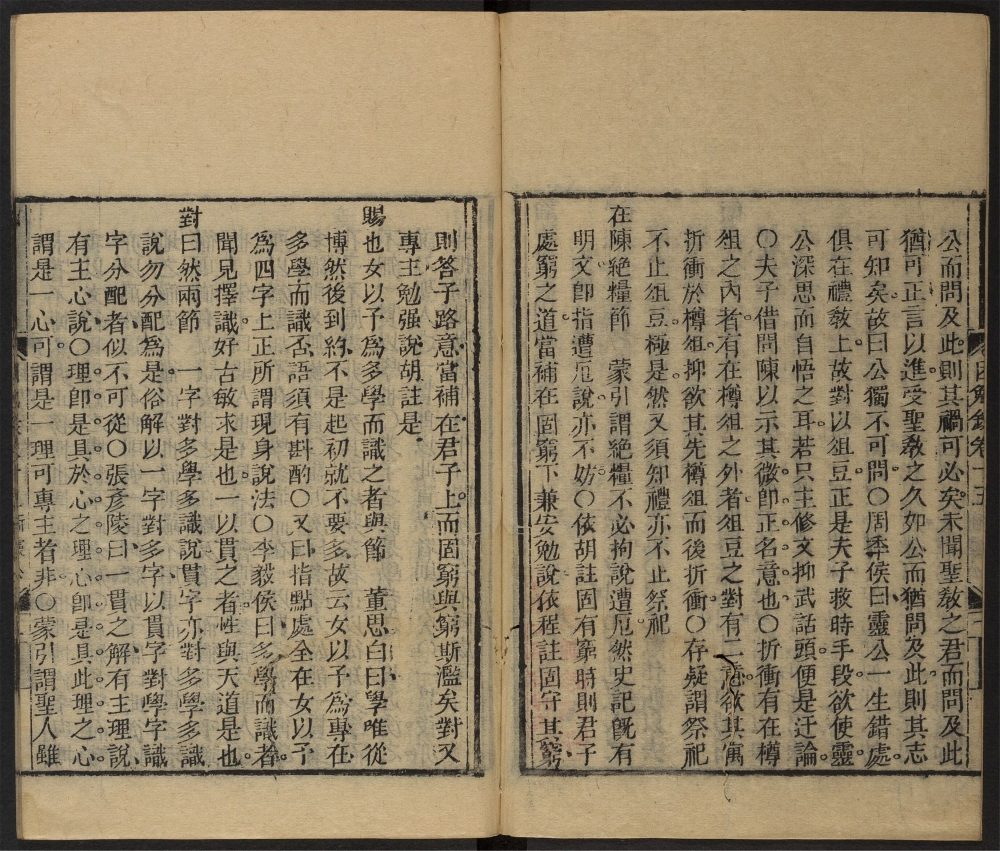 公而問及此則其禍可必矣未聞聖敎之君而問及此
猶可正言以進受聖敎之久如公而猶問及此則其志
可知矣故曰公獨不可問○周季侯曰靈公一生錯處
俱在禮敎上故對以俎豆正是夫子救時手段欲使靈
公深思而自悟之耳若只主修文抑武話頭便是迂論
○夫子借問陳以示其微卽正名意也○折衝有在樽
俎之內者有在樽俎之外者俎豆之對有二意欲其寓
折衝於樽俎抑欲其先樽俎而後折衝○存疑謂祭祀
不止俎豆極是然又須知禮亦不止祭祀
在陳絶糧節 蒙引謂絶糧不必拘說遭厄然史記旣有
明文卽指遭厄說亦不妨○依胡註固有窮時則君子
處窮之道當補在固窮下兼安勉說依程註固守其窮
則答子路意當補在君子上而固窮與窮斯濫矣對又
專主勉强說胡註是
賜也女以予爲多學而識之者與節 董思白曰學唯從
博然後到約不是起初就不要多故云女以予爲專在
多學而識否語須有斟酌○又曰指點處全在女以予
爲四字上正所謂現身說法○李毅侯曰多學而識者
聞見擇識好古敏求是也一以貫之者性與天道是也
對曰然兩節 一字對多學多識說貫字亦對多學多識
說勿分配爲是俗解以一字對多字以貫字對學字識
字分配者似不可從○張彥陵曰一貫之解有主理說
有主心說○理卽是具於心之理心卽是具此理之心
謂是一心可謂是一理可專主者非○蒙引謂聖人雖